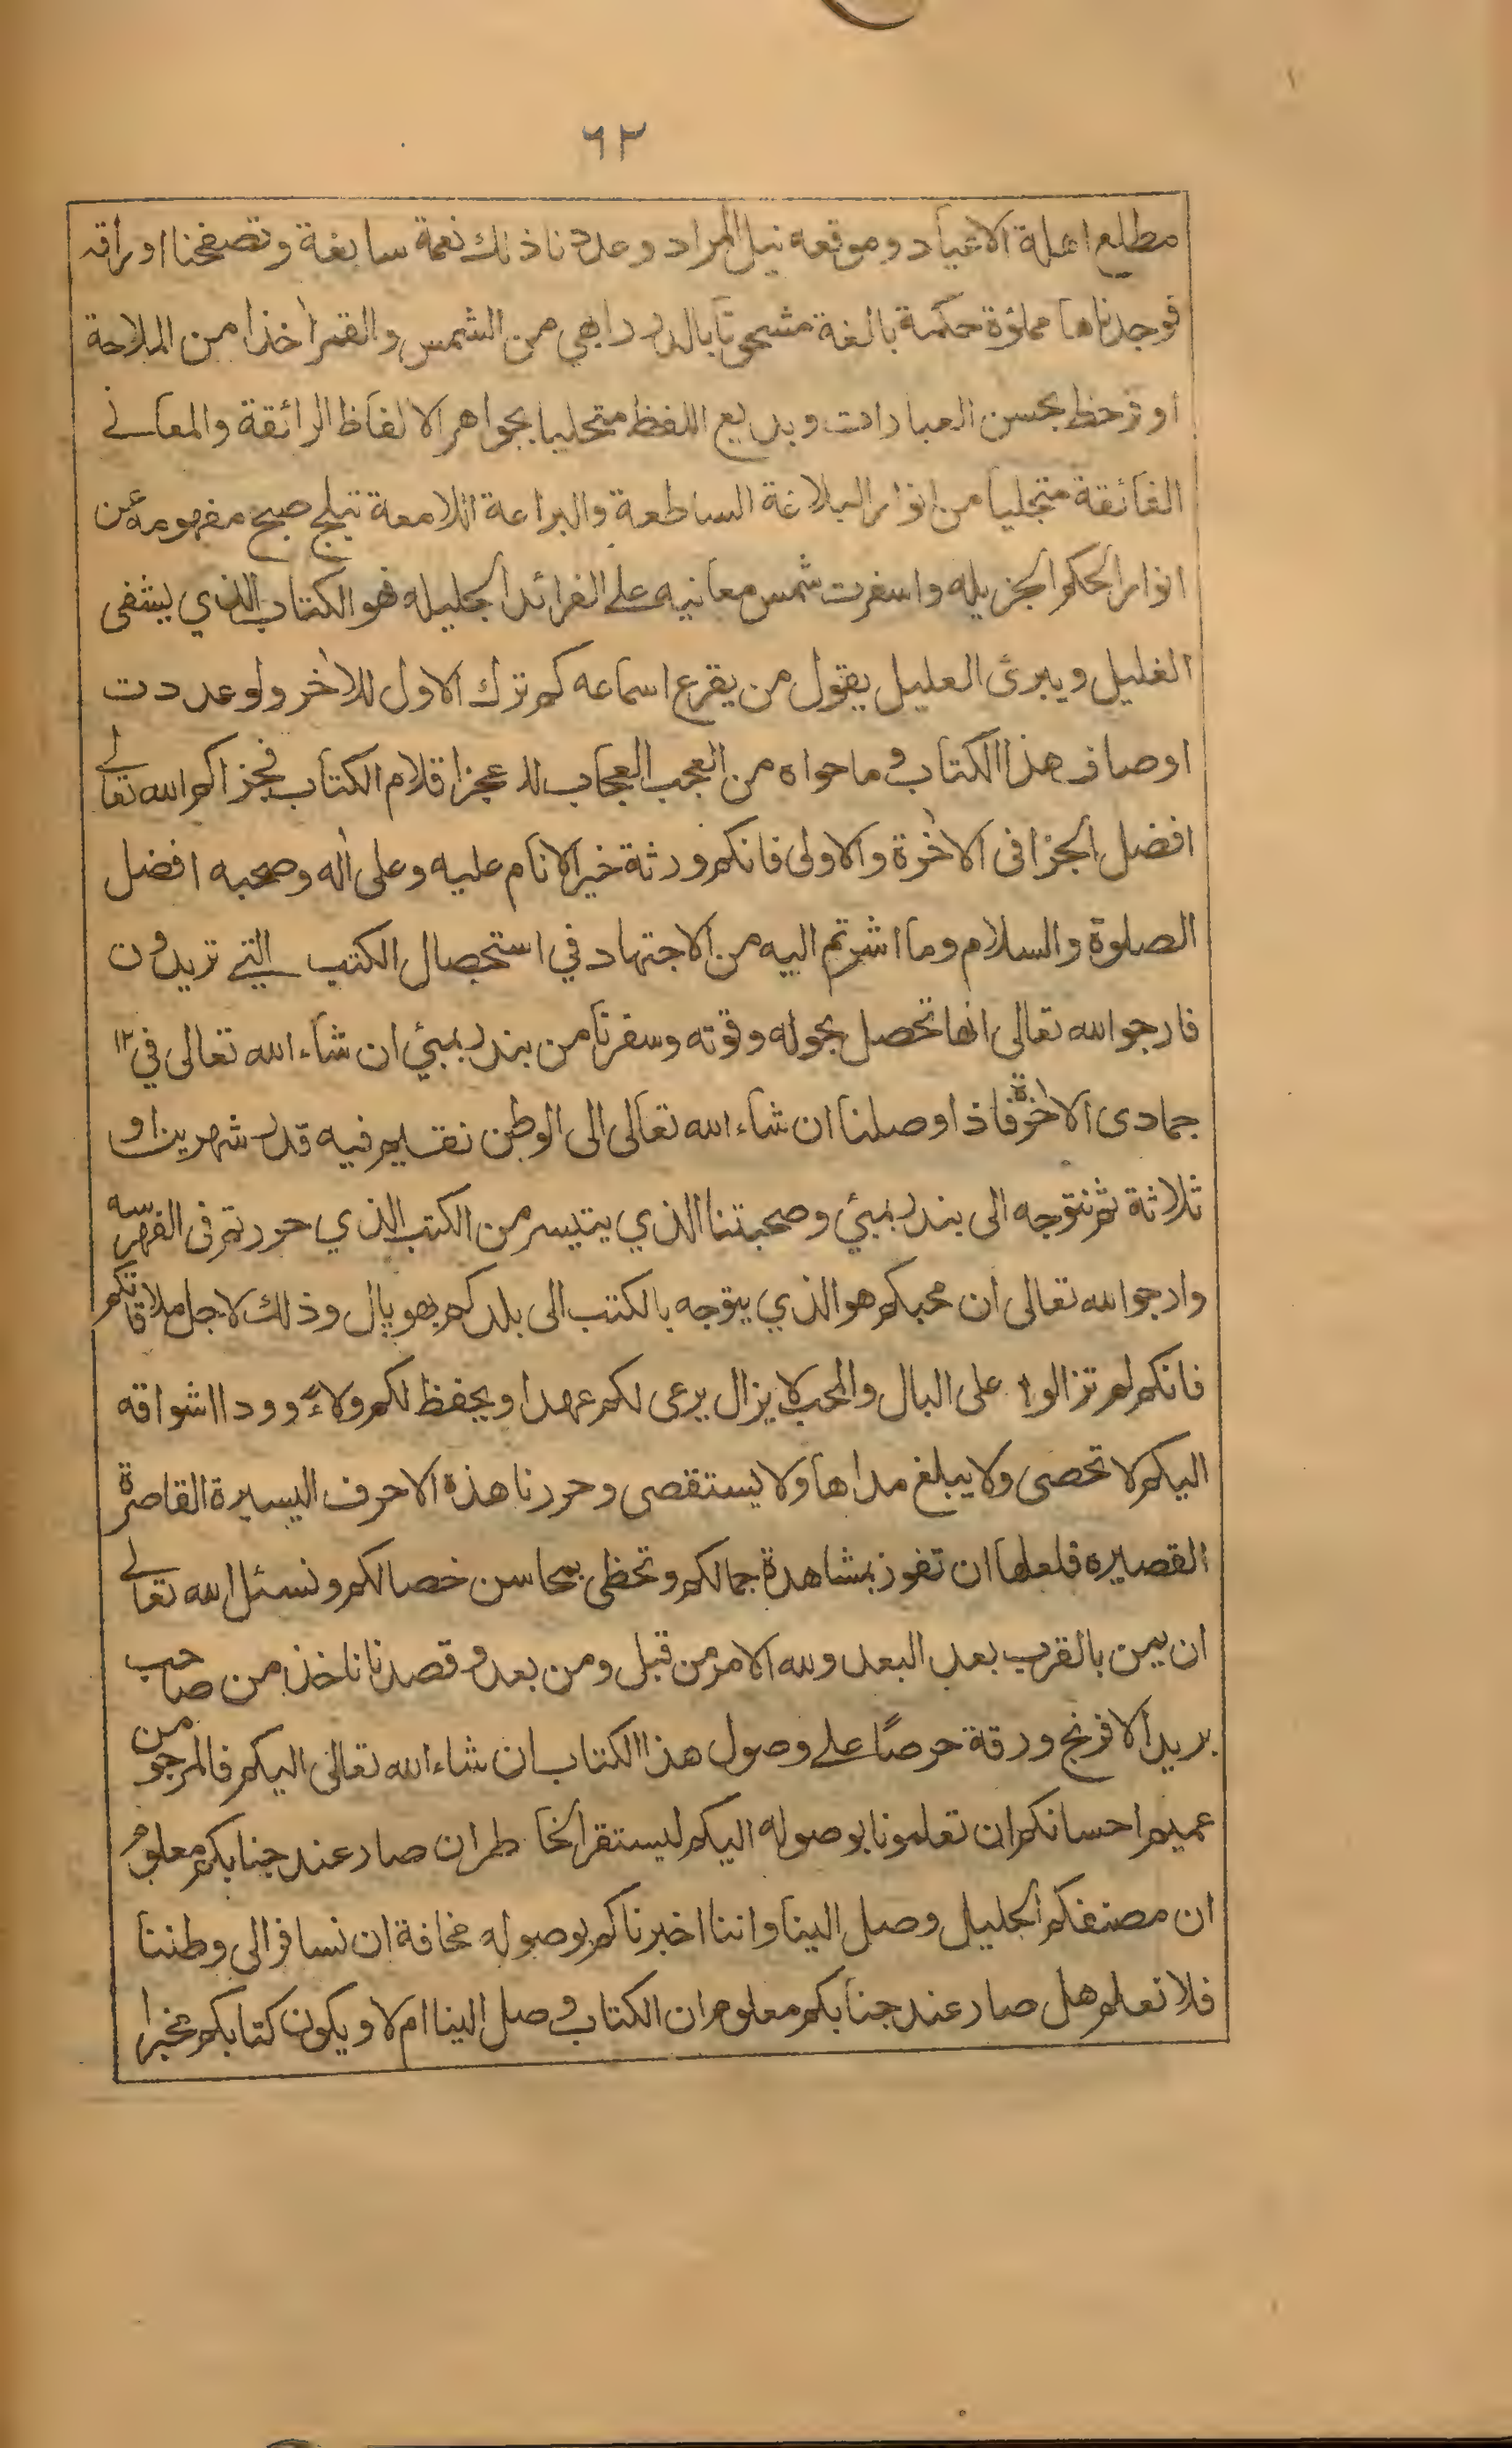 ٦٢
مطلع اهلة الاعياد وموقعه نيل المراد وعددنا ذلك نعمة سابغة وتصفحنا اوراقه
فوجدناها مملؤة حكمة بالغة مشحونا بالدرر ابهى من الشمس والقمر اٰخذا من الملاحة
اوفر حظ بحسن العبارات وبديع اللفظ متحليا بجواهر الالفاظ الرائقة والمعانے
الفائقة متجليا من انوار البلاغة الساطعة والبراعة اللامعة تبلج صبح مفهومه عن
انوار الحكم الجزيله واسفرت شمس معانيه علے الفرائد الجليله فهو الكتاب الذي يشفى
الغليل ويبرئ العليل يقول من يقرع اسماعه كم ترك الاول للاٰخر ولو عددت
اوصاف هذا الكتاب وما حواه من العجب العجاب لا عجز اقلام الكتاب فجزاكم الله تعالے
افضل الجزا فى الاٰخرة والاولى فانكم ورثة خير الانام عليه وعلى اٰله وصحبه افضل
الصلوة والسلام وما اشرتم اليه من الاجتهاد في استحصال الكتب التے تريدون
فارجو الله تعالى انها تحصل بحوله وقوته وسفرنا من بندر بمبئي ان شاء الله تعالى في ١٢
جمادى الاٰخرة فاذا وصلنا ان شاء الله تعالى الى الوطن نقيم فيه قدر شهرين او
ثلاثة ثم نتوجه الى بندر بمبئي وصحبتنا الذي يتيسر من الكتب الذي حررتم فى الفهرسه
وارجو الله تعالى ان محبكم هو الذي يتوجه بالكتب الى بلدكم بهوپال وذلك لاجل ملاقاتكم
فانكم لم تزالوا على البال والمحب لا يزال يرعى لكم عهدا ويحفظ لكم ولاءً وودا اشواقه
اليكم لا تحصى ولا يبلغ مداها ولا يستقصى وحررنا هذه الاحرف اليسيرة القاصرة
القصيره فلعلها ان تفوز بمشاهدة جمالكم وتحظى بمحاسن خصالكم ونسئل الله تعالے
ان يمن بالقرب بعد البعد ولله الامر من قبل ومن بعد وقصدنا ناخذ من صاحب
بريد الافرنج ورقة حرصًا علے وصول هذا الكتاب ان شاء الله تعالى اليكم فالمرجو من
عميم احسانكم ان تعلمونا بوصوله اليكم ليستقر الخاطر ان صار عند جنابكم معلوم
ان مصنفكم الجليل وصل الينا واننا اخبرناكم بوصوله مخافة ان نسافر الى وطننا
فلا نعلم هل صار عند جنابكم معلوم ان الكتاب وصل الينا ام لا ويكون كتابكم مخبرا